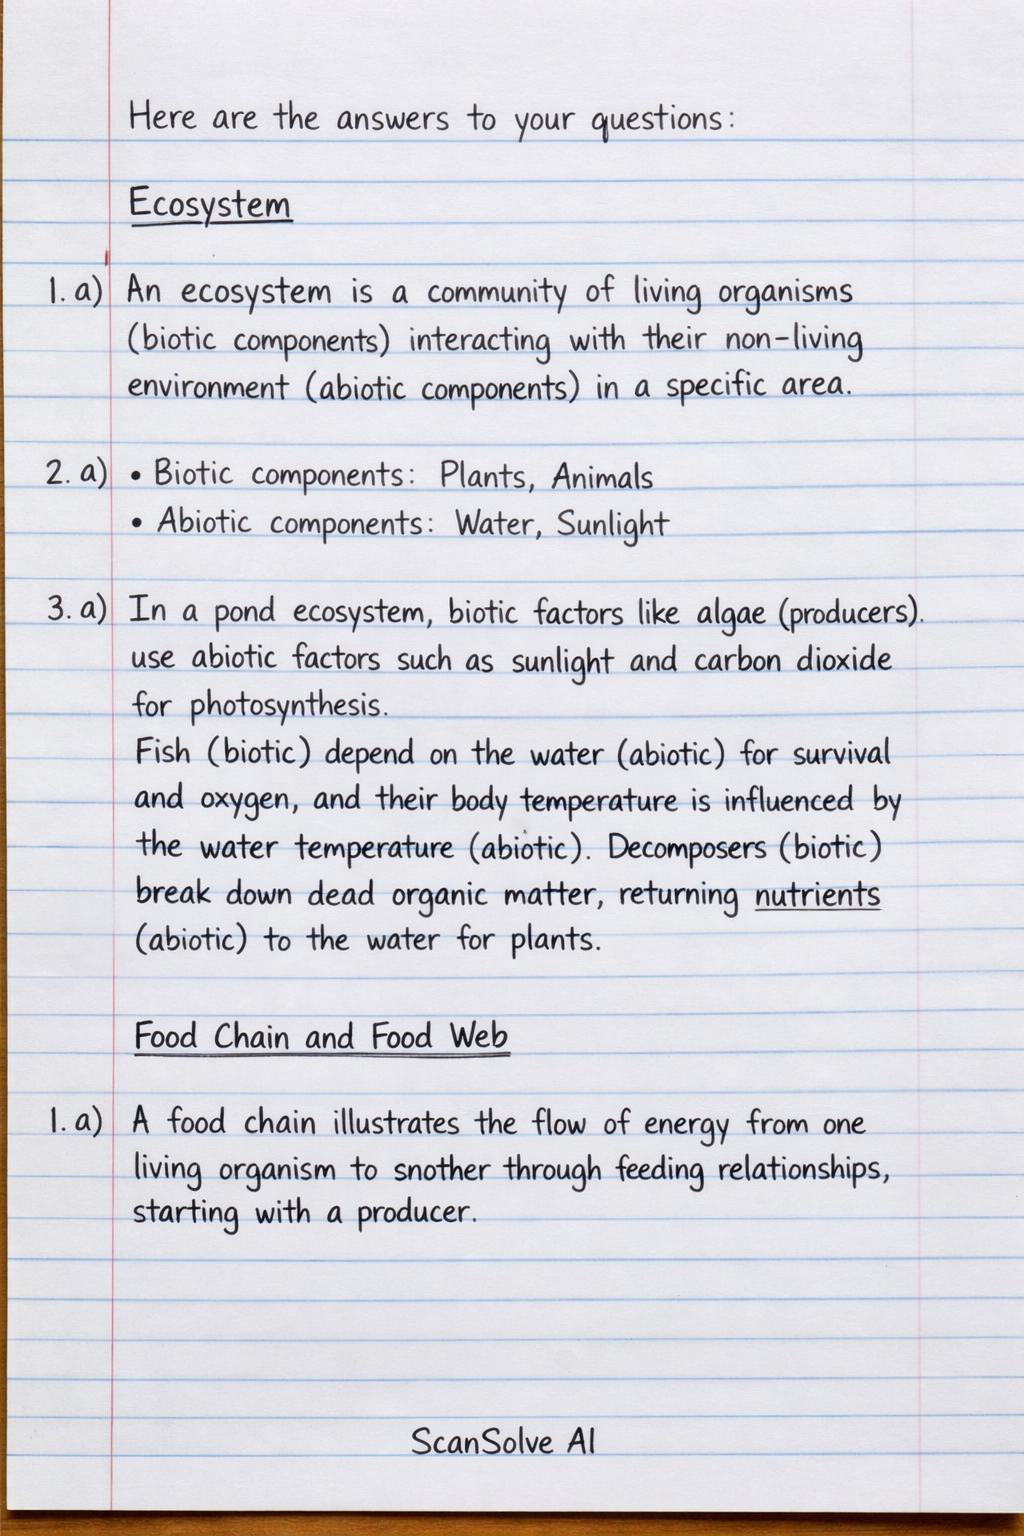 Here are the answers to your questions:
Ecosystem
1. a) An ecosystem is a community of living organisms
(biotic components) interacting with their non-living
environment (abiotic components) in a specific area.
2. a) • Biotic components: Plants, Animals
• Abiotic components: Water, Sunlight
3. a) In a pond ecosystem, biotic factors like algae (producers).
use abiotic factors such as sunlight and carbon dioxide
for photosynthesis.
Fish (biotic) depend on the water (abiotic) for survival
and oxygen, and their body temperature is influenced by
the water temperature (abiotic). Decomposers (biotic)
break down dead organic matter, returning nutrients
(abiotic) to the water for plants.
Food Chain and Food Web
1. a) A food chain illustrates the flow of energy from one
living organism to snother through feeding relationships,
starting with a producer.
ScanSolve AI